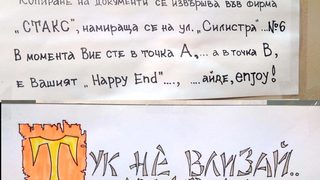 Копиране на документи се извършва във фирма
„СТАКС", намираща се на ул. „Силистра" ...№6
В момента Вие сте в точка А,... а в точка В,
е Вашият „Happy End"...., ....айде, enjoy!
ТУК НЕ ВЛИЗАЙ..